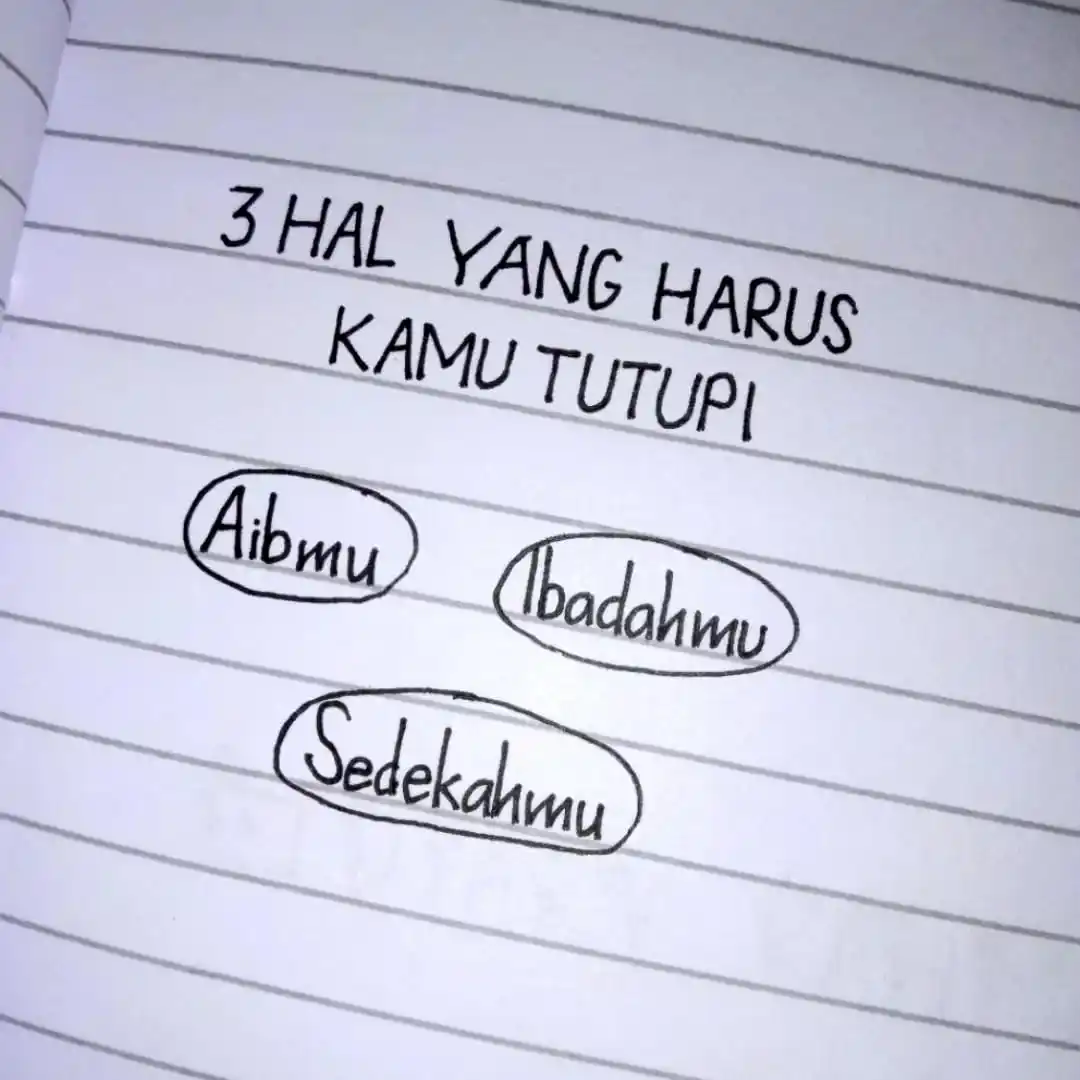 3 HAL YANG HARUS
KAMU TUTUPI
Aibmu
Ibadahmu
Sedekahmu